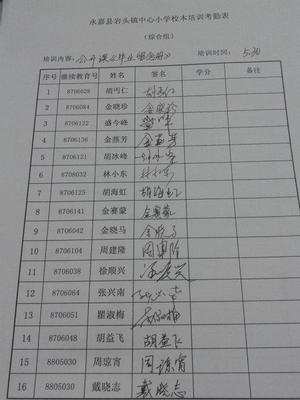 永嘉县岩头镇中心小学校本培训考勤表
(综合组)
培训内容: 公开课《毕业留念册》 培训时间: 5.30
序号 继续教育号 姓名 签名 备注
1 8706028 胡丐仁 胡丐仁
2 8706084 金晓珍 金晓珍
3 8706122 盛今峰
4 8706136 金燕芳 金燕芳
5 8706121 胡冰峰 胡冰峰
6 8708032 林小东 林小东
7 8706125 胡海虹 胡海虹
8 8706141 金赛蒙 金赛蒙
9 8706042 金晓马 金晓马
10 8706104 周建隆 周建隆
11 8706038 徐顺兴 徐顺兴
12 8706062 张兴南
13 8706051 瞿淑梅
14 8706048 胡益飞 胡益飞
15 8805030 周琼宵 周琼宵
16 8805030 戴晓志 戴晓志